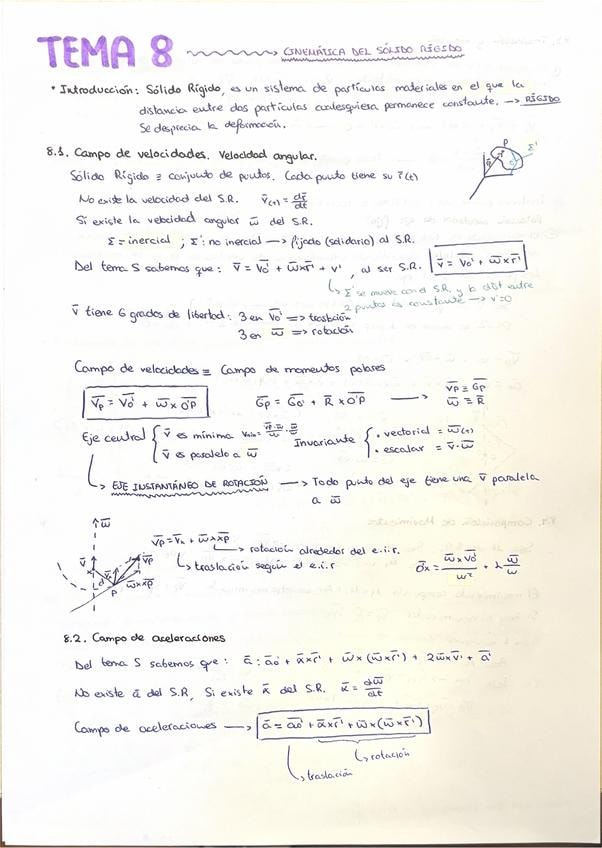 TEMA 8 → CINEMÁTICA DEL SÓLIDO RÍGIDO
* Introducción: Sólido Rígido, es un sistema de partículas materiales en el que la
distancia entre dos partículas cualesquiera permanece constante. → RÍGIDO
Se desprecia la deformación.
8.1. Campo de velocidades. Velocidad angular.
Sólido Rígido ≡ conjunto de puntos. Cada punto tiene su r̄(t)
P
Σ'
No existe la velocidad del S.R. v̄(t) = dr̄/dt
Si existe la velocidad angular ω̄ del S.R.
Σ = inercial ; Σ': no inercial → fijado (solidario) al S.R.
Del tema 5 sabemos que: v̄ = v̄o' + ω̄ x r̄' + v', al ser S.R. v̄ = v̄o' + ω̄ x r̄'
↳ Σ' se mueve con el S.R. y la dist entre
2 puntos es constante → v'=0
v̄ tiene 6 grados de libertad: 3 en v̄o' => traslación
3 en ω̄ => rotación
Campo de velocidades ≡ Campo de momentos polares
v̄p = v̄o' + ω̄ x O̅'P̅ Ḡp = Ḡo' + R̄ x O̅'P̅ → v̄p ≡ Ḡp
ω̄ ≡ R̄
Eje central { v̄ es mínima vmin = v̄p·ω̄/ω · ω̄/ω
v̄ es paralelo a ω̄
Invariante { • vectorial = ω̄(t)
• escalar = v̄·ω̄
↳ EJE INSTANTÁNEO DE ROTACIÓN → Todo punto del eje tiene una v̄ paralela
a ω̄
ω̄
v̄p = v̄h + ω̄ x x̄p̄
↳ rotación alrededor del e.i.r.
↳ traslación según el e.i.r
v̄
v̄h
v̄p
d
P
ω̄ x x̄p̄
O̅x̅ = ω̄ x v̄o'/ω² + λ ω̄/ω
8.2. Campo de aceleraciones
Del tema 5 sabemos que: ā = āo' + ᾱ x r̄' + ω̄ x (ω̄ x r̄') + 2ω̄ x v̄' + ā'
No existe ā del S.R, Si existe ᾱ del S.R. ᾱ = dω̄/dt
Campo de aceleraciones → ā = āo' + ᾱ x r̄' + ω̄ x (ω̄ x r̄')
↳ rotación
↳ traslación